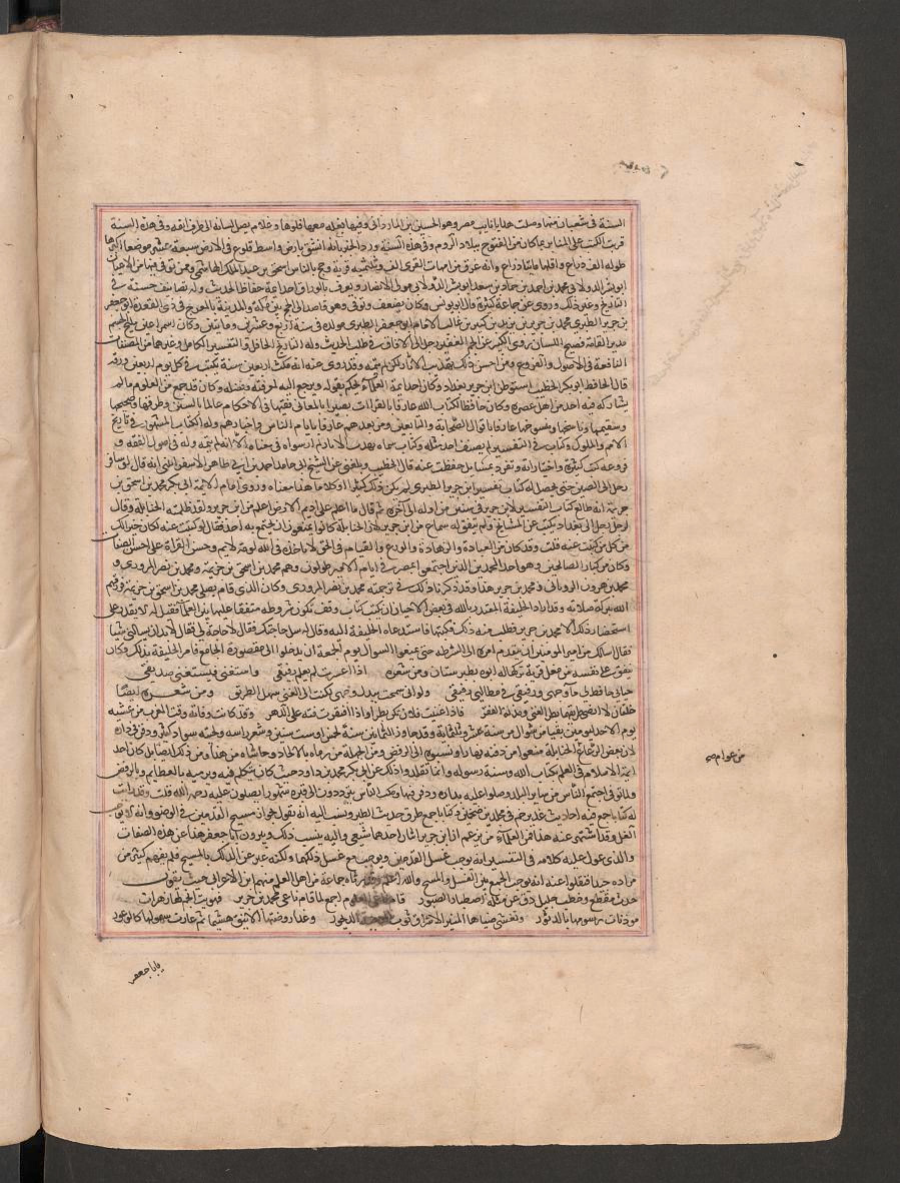 السنة في شعبان منها وصلت هدايا نايب مصر وهو الحسين بن المادراني وفيها بغلة معها فلوها وغلام يصل لسانه الى طرف انفه وفي هذه السنة
قريت الكتب على المنابر بما كان من الفتوح ببلاد الروم وفي هذه السنة ورد الخبر بانه انشق بارض واسط فلوع في الارض سبعة عشر موضعا اكبرها
طوله الف ذراع واقلها مايتا ذراع وانه غرق من امهات القرى الف وثلثمية قرية وحج بالناس اسحق بن عبد الملك الهاشمي وممن توفي فيها من الاعيان
ابو بشر الدولابي محمد بن احمد بن حماد بن سعد ابو بشر الدولابي مولى الانصار ويعرف بالوراق احد ايمة حفاظ الحديث وله تصانيف حسنة في
التاريخ وغير ذلك وروى عن جماعة كثيرة قال ابو يونس وكان يضعف وتوفي وهو قاصد الى الحج بين مكة والمدينة بالعرج في ذي القعدة ابو جعفر
بن جرير الطبري محمد بن جرير بن يزيد بن كثير بن غالب الامام ابو جعفر الطبري مولده في سنة اربع وعشرين ومايتين وكان اسمر اعين مليح الجسم
مديد القامة فصيح اللسان روى الكثير عن الجم الغفير رحل الى الافاق في طلب الحديث وله التاريخ الحافل والتفسير الكامل وغيرهما من المصنفات
النافعة في الاصول والفروع ومن احسن ذلك تهذيب الاثار لكن لم يتمه وقد روي عنه انه مكث اربعين سنة يكتب في كل يوم اربعين ورقة
قال الحافظ ابو بكر الخطيب استوطن ابن جرير بغداد وكان احد ايمة العلماء يحكم بقوله ويرجع اليه لمعرفته وفضله وكان قد جمع من العلوم مالم
يشاركه فيه احد من اهل عصره وكان حافظا لكتاب الله عارفا بالقراات بصيرا بالمعاني فقيها في الاحكام عالما بالسنن وطرقها وصحيحها
وسقيمها وناسخها ومنسوخها عارفا باقوال الصحابة والتابعين ومن بعدهم عارفا بايام الناس واخبارهم وله الكتاب المشهور في تاريخ
الامم والملوك وكتاب في التفسير لم يصنف احد مثله وكتاب سماه تهذيب الاثار لم ار سواه في معناه الا انه لم يتمه وله في اصول الفقه و
فروعه كتب كثيرة واختيارات وتفرد بمسايل حفظت عنه قال الخطيب وبلغني عن الشيخ ابي حامد احمد بن ابي طاهر الاسفرايني انه قال لو سافر
رجل الى الصين حتى يحصل له كتاب تفسير ابن جرير الطبري لم يكن ذلك كثيرا او كلاما هذا معناه وروى امام الايمة ابو بكر محمد بن اسحق بن
خزيمة انه طالع كتاب التفسير لابن جرير في سنين من اوله الى اخره ثم قال ما اعلم على اديم الارض اعلم من ابن جرير ولقد ظلمته الحنابلة وقال
لرجل رحل الى بغداد يكتب عن المشايخ ولم يتفق له سماع من ابن جرير لان الحنابلة كانوا يمنعون ان يجتمع به احد فقال لو كتبت عنه لكان خيرا لك
من كل من كتبت عنه قلت وقد كان من العبادة والزهادة والورع والقيام في الحق لا ياخذه في الله لومة لايم وحسن القراة على احسن الصفات
وكان من كبار الصالحين وهو احد المحدثين الذين اجتمعوا بمصر في ايام الامير طولون وهم محمد بن اسحق بن خزيمة ومحمد بن نصر المروزي و
محمد بن هرون الروياني ومحمد بن جرير هذا وقد ذكرنا ذلك في ترجمة محمد بن نصر المروزي وكان الذي قام يصلي محمد بن اسحق بن خزيمة فرزقهم
الله ببركة صلاته وقد اراد الخليفة المقتدر بالله في بعض الاحيان ان يكتب كتاب وقف تكون شروطه متفقا عليها بين العلماء فقيل له لا يقدر على
استحضار ذلك الا محمد بن جرير فطلب منه ذلك فكتبها فاستدعاه الخليفة اليه وقال له سل حاجتك فقال لا حاجة لي فقال لا بد ان تسالني شيا
فقال اسالك من امير المومنين ان يتقدم امره الى الشرطة حتى يمنعوا السوال يوم الجمعة ان يدخلوا الى مقصورة الجامع فامر الخليفة بذلك وكان
ينفق على نفسه من مغل قرية تركها له ابوه بطبرستان ومن شعره اذا اعسرت لم يعلم رفيقي واستغني فيستغني صديقي
حيايي حافظ لي ماء وجهي ورفقي في مطالبتي رفيقي ولو اني سمحت ببذل وجهي لكنت الى الغنى سهل الطريق ومن شعره ايضا
خلقان لا ارضى طريقهما بطر الغنى ومذلة الفقر فاذا غنيت فلا تكن بطرا واذا افتقرت فته على الدهر وقد كانت وفاته وقت المغرب من عشية
يوم الاحد ليومين بقيا من شوال من سنة عشر وثلثماية وقد جاوز الثمانين سنة بخمس او ست سنين وشعر راسه ولحيته سواد كثير ودفن في داره
لان بعض الرعاع الحنابلة منعوا من دفنه نهارا ونسبوه الى الرفض ومن الجهلة من رماه بالالحاد وحاشاه من هذا ومن ذلك ايضا بل كان احد
ايمة الاسلام في العلم بكتاب الله وسنة رسوله وانما تقلدوا ذلك عن ابي بكر محمد بن داود حيث كان يتكلم فيه ويرميه بالعظايم وبالرفض
ولما توفي اجتمع الناس من ساير البلد وصلوا عليه بداره ودفن فيها ومكث الناس يترددون الى قبره شهورا يصلون عليه رحمه الله قلت وقد رايت
له كتابا جمع فيه احاديث غدير خم في مجلدين ضخمين وكتابا جمع طرق حديث الطير ونسب اليه انه يقول بجواز مسح القدمين في الوضو وانه لا يوجب
الغسل وقد اشتهر عنه هذا فمن العلماء من يزعم ان ابن جرير اثنان احدهما شيعي واليه ينسب ذلك وينزهون ابا جعفر هذا عن هذه الصفات
والذي عول عليه كلامه في التفسير انه يوجب غسل القدمين ويوجب مع غسل دلكهما ولكنه عبر عن الدلك بالمسح فلم يفهم كثير من
مراده جيدا فنقلوا عنه انه يوجب الجمع بين الغسل والمسح والله اعلم وقد رثاه جماعة من اهل العلم منهم ابن الاعرابي حيث يقول
حدث مفظع وخطب جليل دق عن مثله اصطبار الصبور قام ناعي العلوم اجمع لما قام ناعي محمد بن جرير فهوت انجم لها زاهرات
موذنات رسومها بالدثور وتغشى ضياها النير الاشراق ثوب الدجنة الديجور وغدا روضها الانيق هشيما ثم عادت سهولها كالوعور
من عوام
يا ابا جعفر